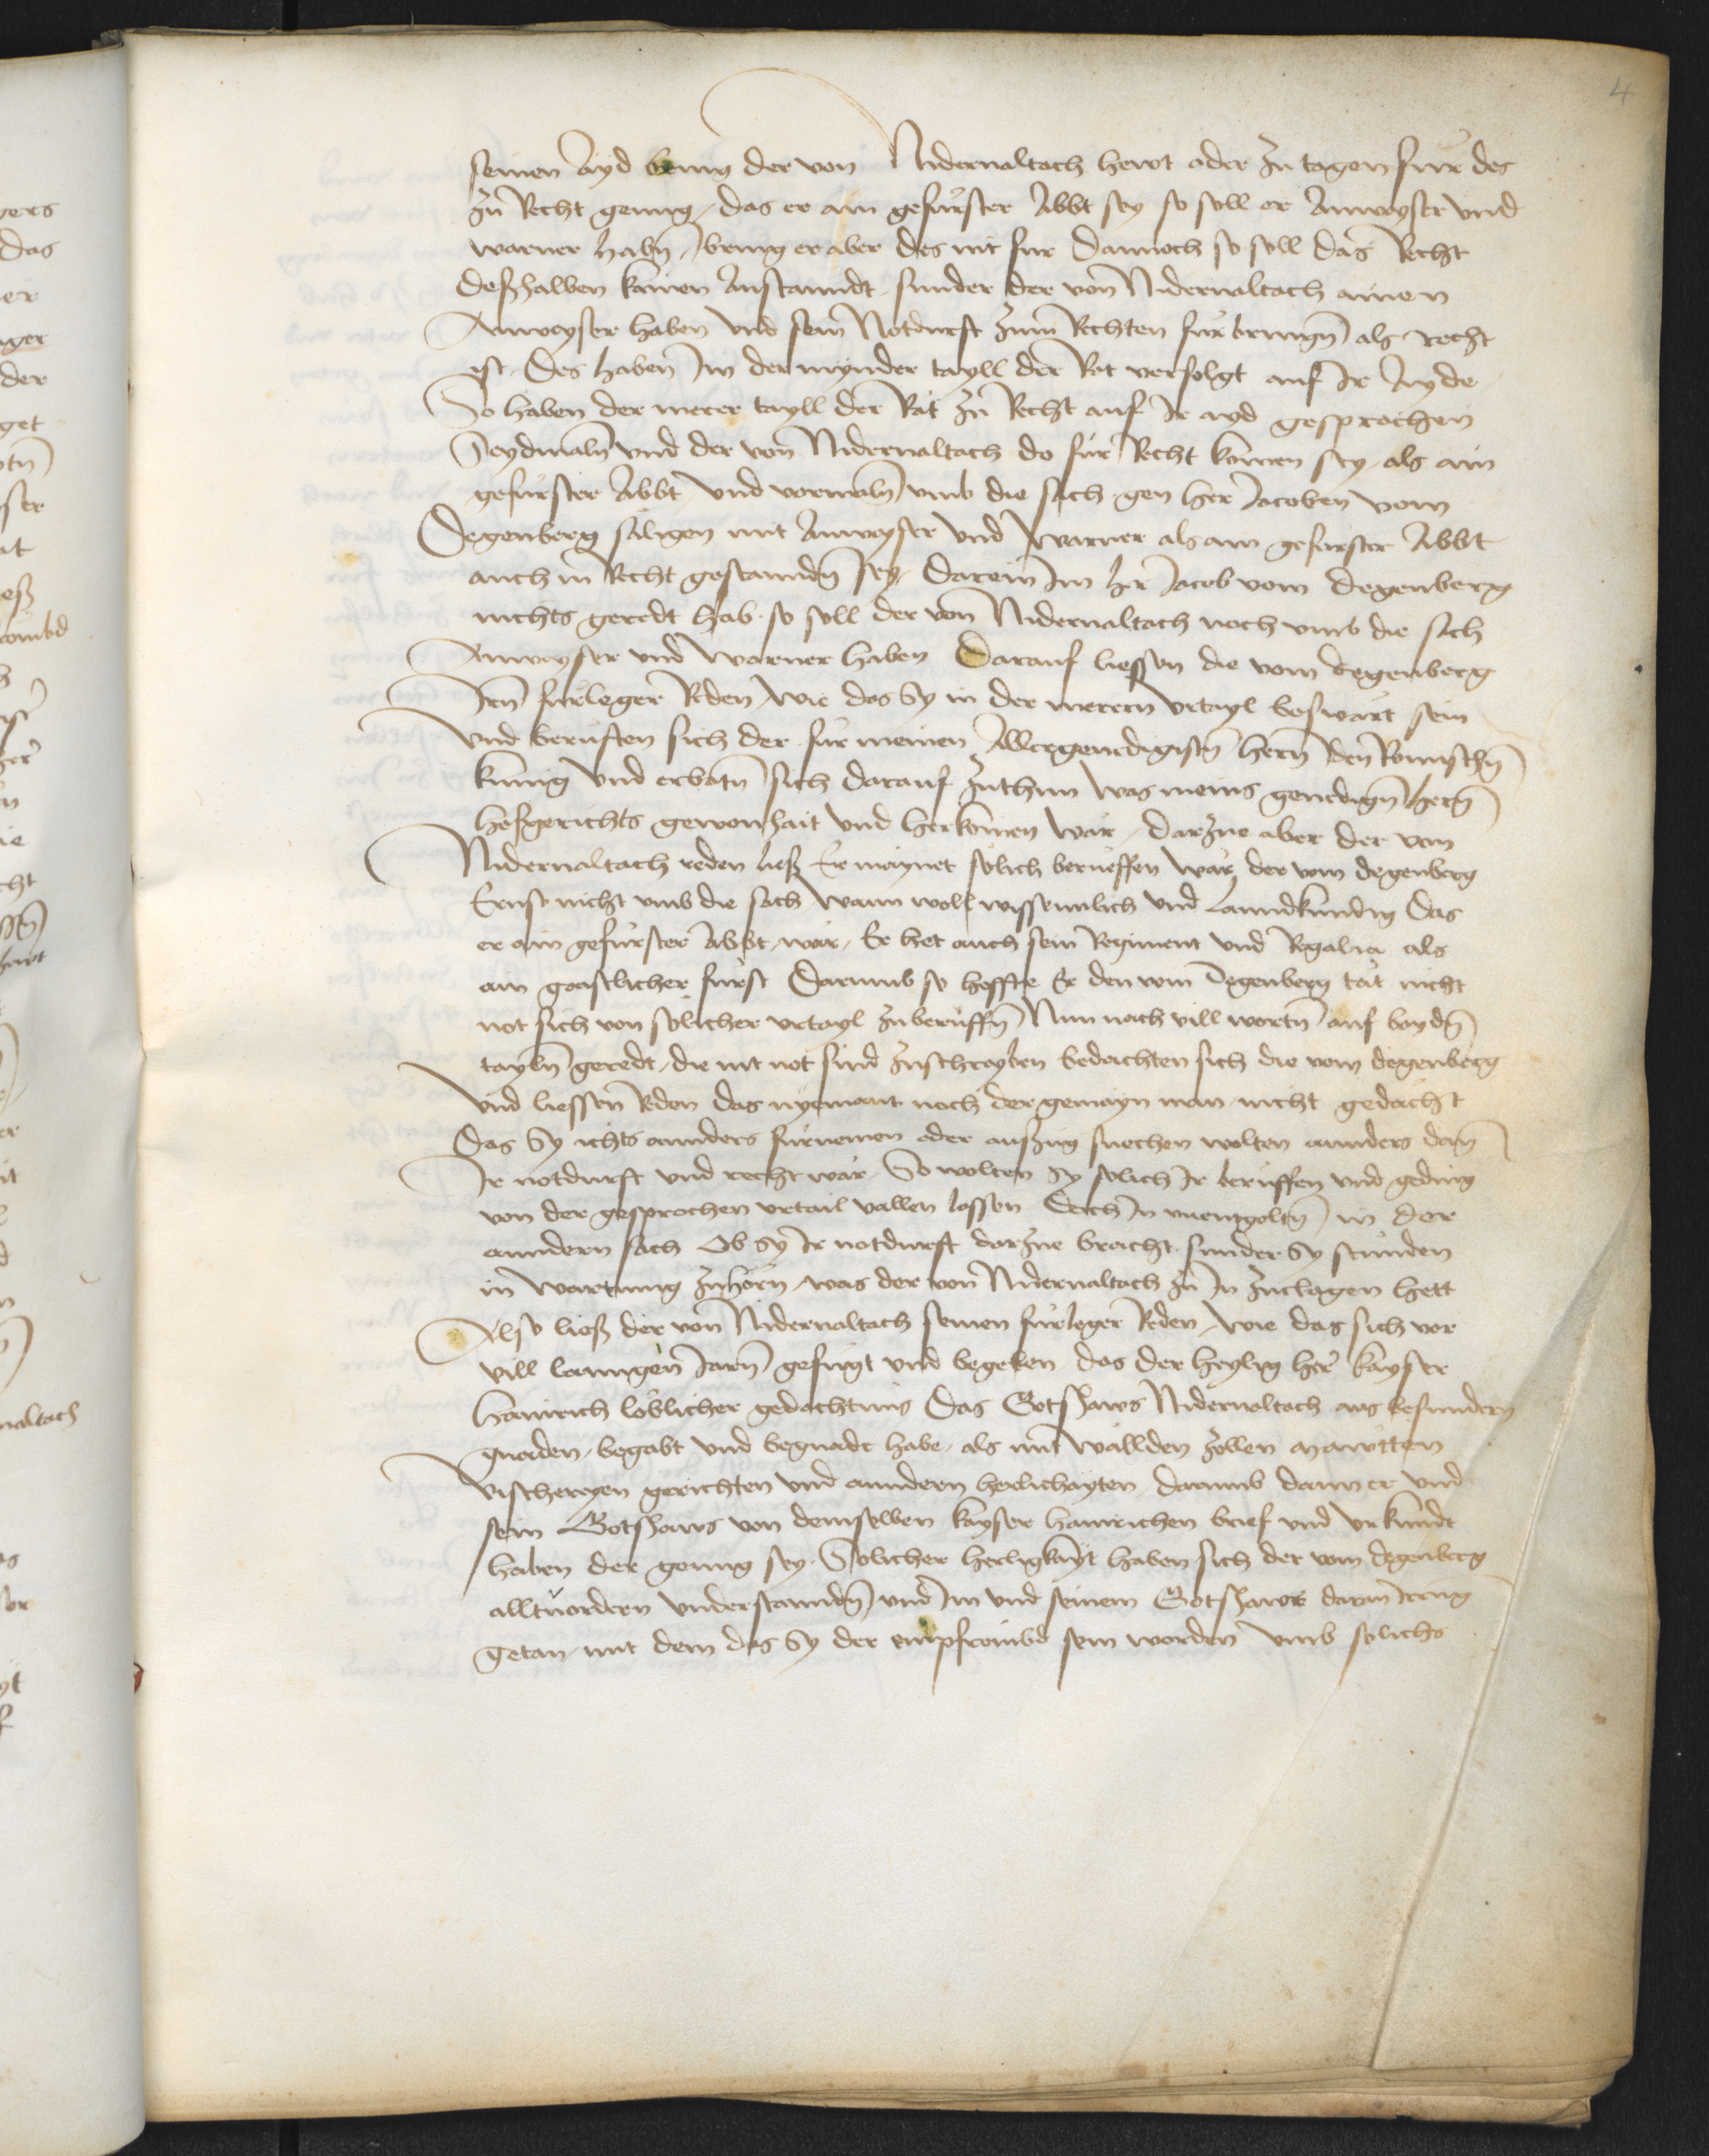 4
seinen Ayd bring der von Nidernaltach hewt oder zu tagen für des
zu Recht genug, das er ain gefürster Abbt sey so soll er Anweyser vnd
warner habn, bring er aber des nit für Dannoch so soll das Recht
deßhalben kainen Anstanndt sunder der von Nidernaltach ainen
Anweyser haben vnd sein Notdurft zum Rechten fürbringn als recht
ist. Des haben Im der mynder tayll der Rat verfolgt auf Ir Ayde
So haben der merer tayll der Rät zu Recht auf Ir ayd gesprochen
Seydmaln vnd der von Nidernaltach do für Recht komen sey als ain
gefürster Abbt vnd vormaln vmb die sach gen her Jacoben vom
Degenberg säligen mit Anweyser vnd Warner als ain gefürster Abbt
auch in Recht gestanndn sey, Darein Im her Jacob vom Degenberg
nichts geredt hab. so soll der von Nidernaltach noch vmb die sach
Anweyser vnd Warner haben Darauf liessen die vom Degenberg
Irn fürleger Reden, wie das Sy in der merern vrtayl beswärt sein
vnd berüften sich der für meinen Allergenedigistn hern den Romischn
kunig vnd erbotn sich darauf zuthun was meins genedign hern
hofgerichts gewonhait vnd herkomen wär, darzue aber der von
Nidernaltach reden ließ Er maynet sölich beruffen wär der vom Degenberg
Ernst nicht vmb die sach Wann woll wissennlich vnd Lanndkundig Das
er ain gefürster Abbt wär, Er het auch sein Regiment vnd Regalia als
ain geistlicher fürst Darumb so hoffte Er den vom Degenberg tät nicht
not sich von solicher vrtayl zuberuffn Nun nach vill wortn auf baydn
tayln geredt, die nit not sind zuschreyben bedachten sich die vom Degenberg
vnd liessen Reden das nyemant noch der gemayn man nicht gedächt
Das Sy ichts annders fürnemen oder aufzug suechen wolten annders dan
Ir notdurft vnd recht wär. So wolten Sy solich Ir beruffen vnd geding
von der gesprochen vrtail vallen lassen Doch In vnentgoltn in der
anndern sach Ob Sy Ir notdurft darzue bracht. sunder Sy stunden
in wartnung zuhörn, was der von Nidernaltach zu In zuclagen hett
Also ließ der von Nidernaltach seinen fürleger Reden, wie das sich vor
vill lanngen Jarn gefügt vnd begeben das der heylig her kayser
Hainrich löblicher gedächtnis Das Gotshaws Nidernaltach aus besundern
gnaden, begabt vnd begnadt habe, als mit Wällden zöllen mawtten
Vischereyen gerichten vnd anndern herlichayten darumb dann er vnd
sein Gotshaws von demselben kayser Hainrichen brief vnd vrkundt
haben der genug sey. Solicher herligkayt haben sich der vom Degenberg
alltuordern vnderstanndn vnd Im vnd seinem Gotshaws daran Irrung
getan, mit dem das Sy der empfrömbd sein worden vmb solichs